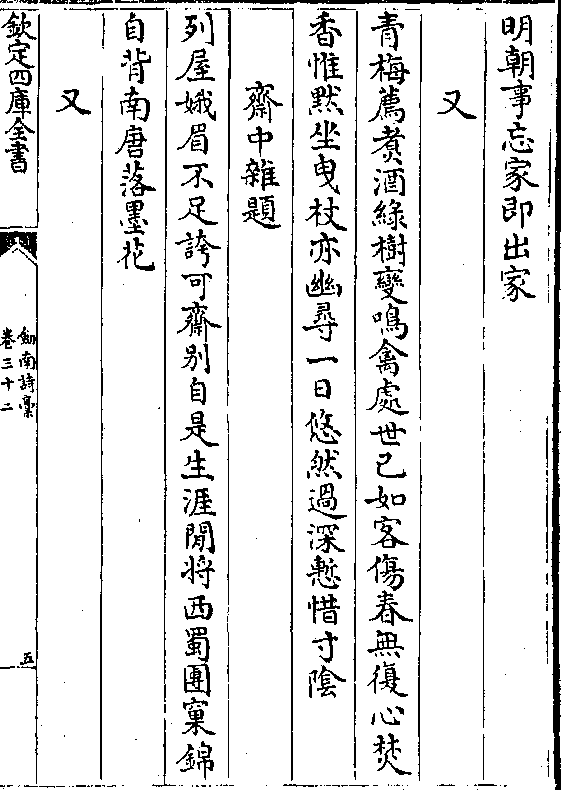 明朝事忘家即出家
又
青梅薦煮酒綠樹變鳴禽處世已如客傷春無復心焚
香惟默坐曳杖亦幽尋一日悠然過深慙惜寸陰
齋中雜題
列屋娥眉不足誇可齋別自是生涯閒將西蜀團窠錦
自背南唐落墨花
又
欽定四庫全書
劒南詩藁
卷三十二
五